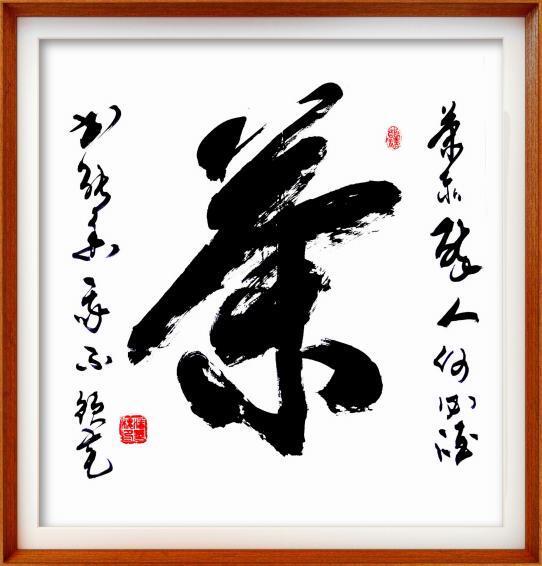 茶亦醉人何必酒
茶
书能香我不须花